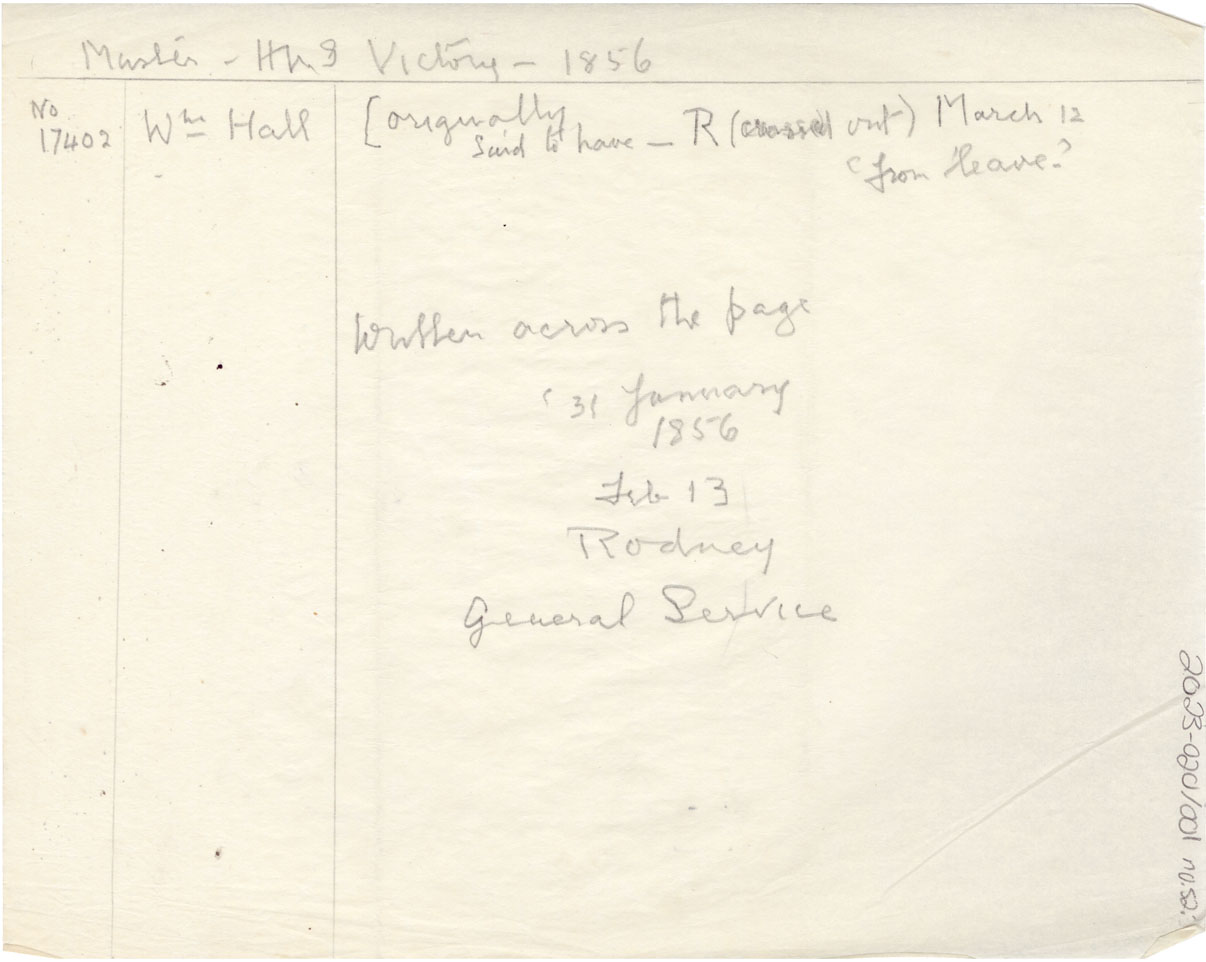 Muster - HMS Victory - 1856
No
17402
Wm Hall
[originally
said to have - R (crossed out) March 12
'from leave.'
Written across the page
'31 January
1856
Feb 13
Rodney
General Service
2023-020/001 no.52.